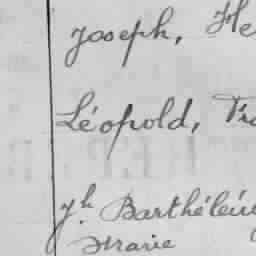 Joseph, He
Léopold, Fra
Jh Barthélémy
Marie